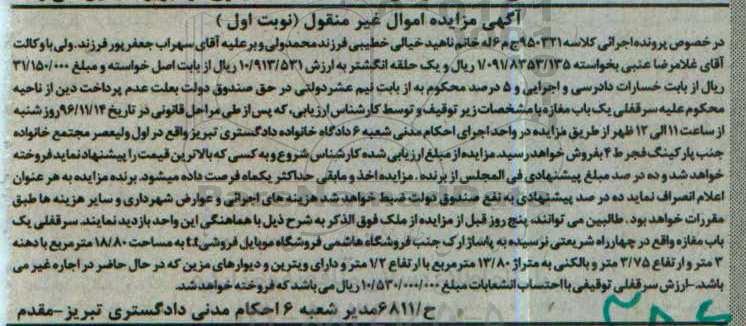 آگهی مزایده اموال غیر منقول (نوبت اول)
در خصوص پرونده اجرائی کلاسه ۹۵۰۳۲۱ج م ۶ له خانم ناهید خیالی خطیبی فرزند محمدولی و بر علیه آقای سهراب جعفرپور فرزند. ولی با وکالت
آقای غلامرضا عنبی بخواسته ۱/۰۹۱/۸۳۵۳/۱۳۵ ریال و یک حلقه انگشتر به ارزش ۱۰/۹۱۳/۵۳۱ ریال از بابت اصل خواسته و مبلغ ۳۱/۱۵۰/۰۰۰
ریال از بابت خسارات دادرسی و اجرایی و ۵ درصد محکوم به از بابت نیم عشر دولتی در حق صندوق دولت بعلت عدم پرداخت دین از ناحیه
محکوم علیه سرقفلی یک باب مغازه با مشخصات زیر توقیف و توسط کارشناس ارزیابی، که پس از طی مراحل قانونی در تاریخ ۹۶/۱۱/۱۴ روز شنبه
از ساعت ۱۱ الی ۱۲ ظهر از طریق مزایده در واحد اجرای احکام مدنی شعبه ۶ دادگاه خانواده دادگستری تبریز واقع در اول ولیعصر مجتمع خانواده
جنب پارکینگ فجر ط ۴ بفروش خواهد رسید. مزایده از مبلغ ارزیابی شده کارشناس شروع و به کسی که بالاترین قیمت را پیشنهاد نماید فروخته
خواهد شد و ده در صد مبلغ پیشنهادی فی المجلس از برنده . مزایده اخذ و مابقی حداکثر یکماه فرصت داده میشود. برنده مزایده به هر عنوان
اعلام انصراف نماید ده در صد پیشنهادی به نفع صندوق دولت ضبط خواهد شد هزینه های اجرائی و عوارض شهرداری و سایر هزینه ها طبق
مقررات خواهد بود . طالبین می توانند، پنج روز قبل از مزایده از ملک فوق الذکر به شرح ذیل با هماهنگی این واحد بازدید نمایند. سرقفلی یک
باب مغازه واقع در چهارراه شریعتی نرسیده به پاساژ ارک جنب فروشگاه هاشمی فروشگاه موبایل فروشی t.t به مساحت ۱۸/۸۰ متر مربع با دهنه
۳ متر و ارتفاع ۳/۷۵ متر و بالکنی به متراژ ۱۳/۸۰ متر مربع با ارتفاع ۱/۲ متر و دارای ویترین و دیوارهای مزین که در حال حاضر در اجاره غیر می
باشد. -ارزش سرقفلی توقیفی با احتساب انشعابات مبلغ ۱۰/۵۳۰/۰۰۰/۰۰۰ ریال می باشد که فروخته خواهد شد.
ح/۶۸۱۱ مدیر شعبه ۶ احکام مدنی دادگستری تبریز-مقدم